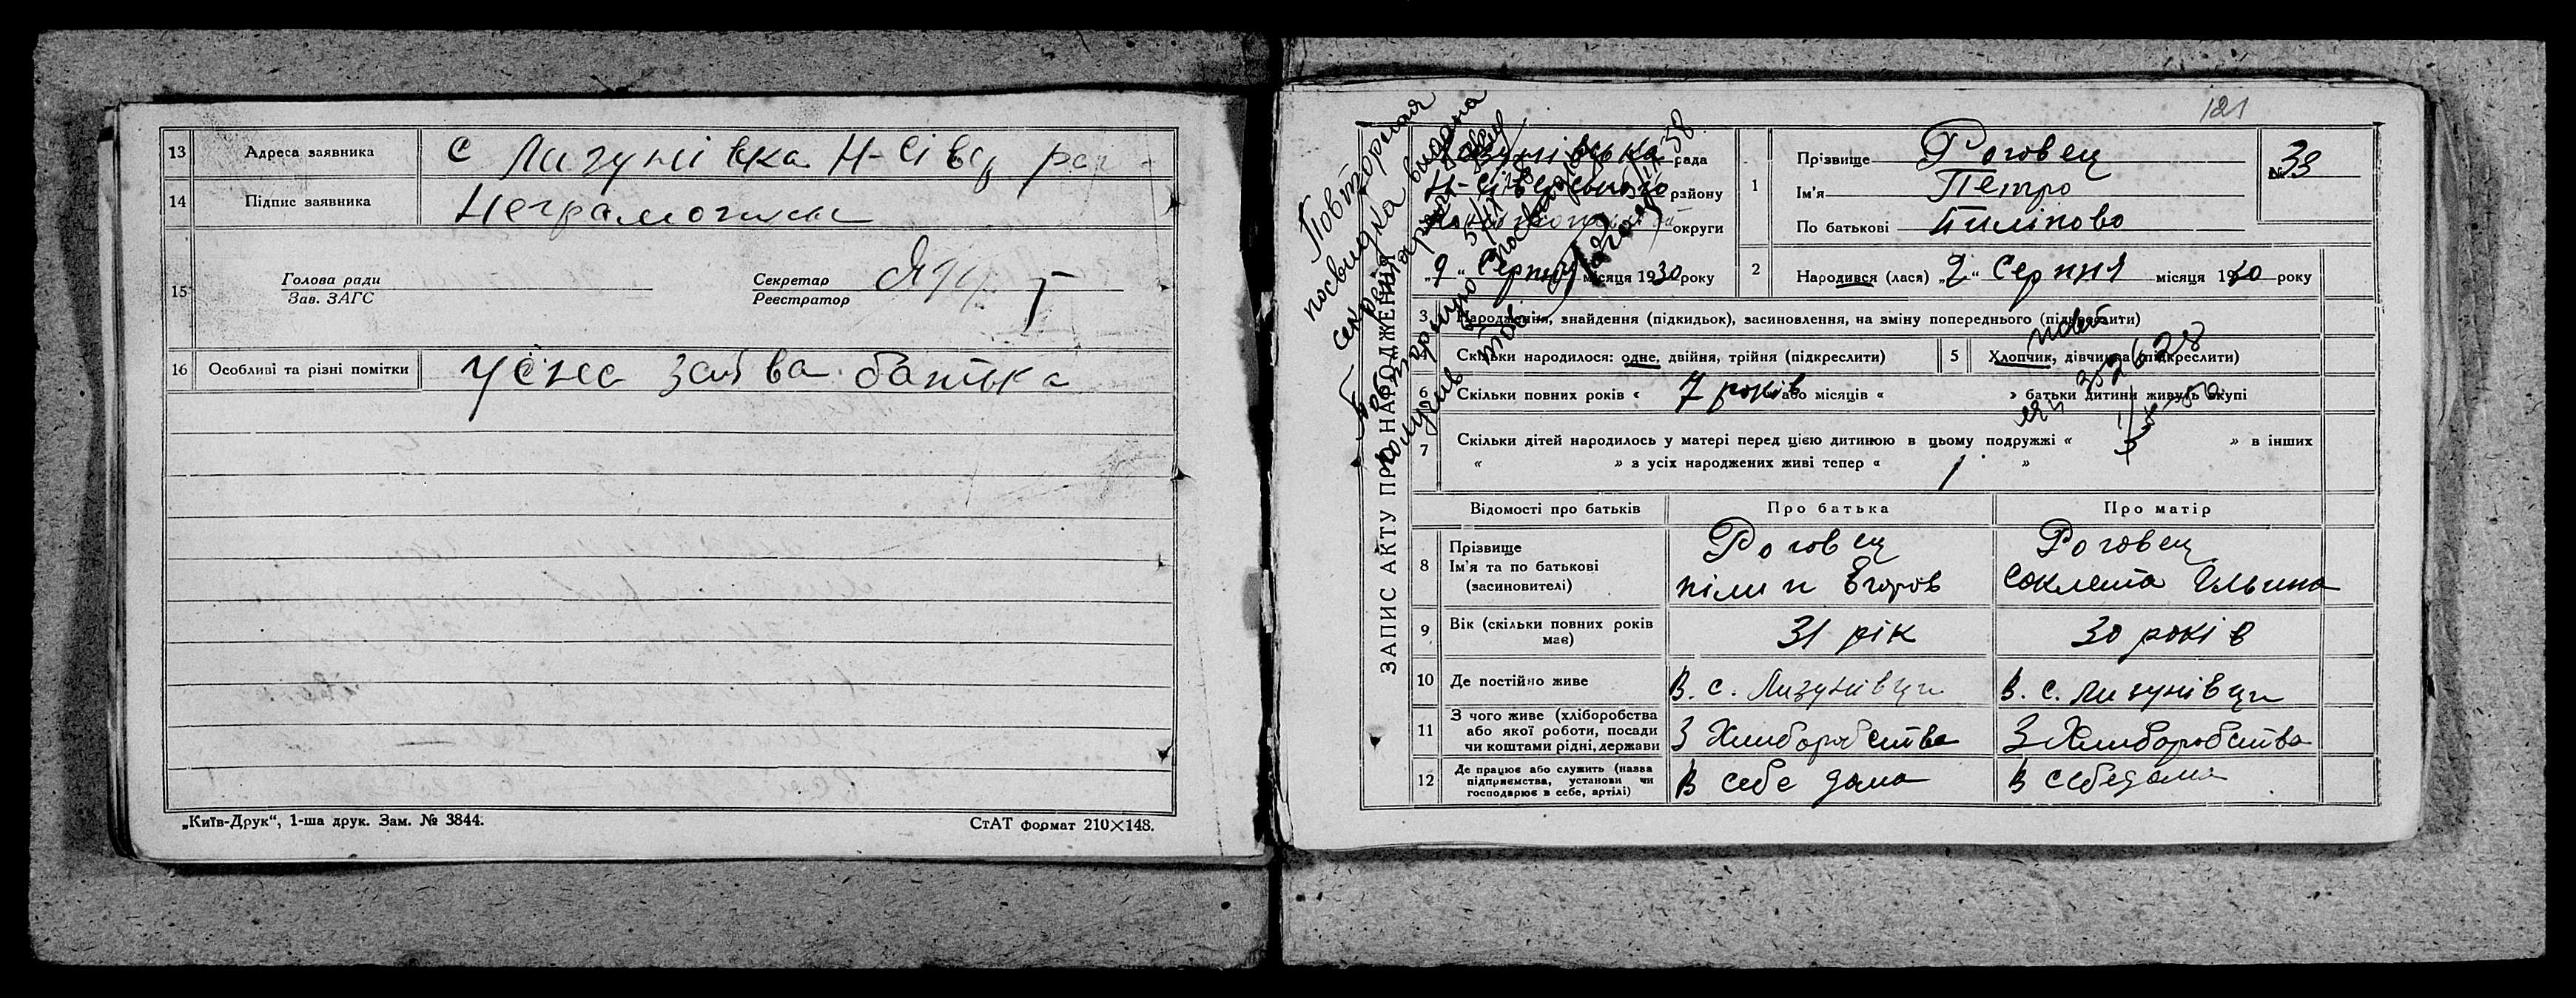 13 Адреса заявника с Лизунівка Н-Сівер рай-
14 Підпис заявника Неграмотний
15 Голова ради
Зав. ЗАГС
Секретар
Реєстратор
16 Особливі та різні помітки Усна заява батька
„Київ-Друк“, 1-ша друк. Зам. № 3844.
СтАТ формат 210×148.
121
Повторная
посвидка видана
ЗАПИС АКТУ ПРО НАРОДЖЕННЯ
Лизунівська рада
Н-Сіверського району
округи
„9“ Серпня місяця 1930 року
1 Прізвище Роговец
Ім'я Петро
По батькові Пиліпово
№ 38
2 Народився (лася) „2“ Серпня місяця 1930 року
3 Народження, знайдення (підкидьок), засиновлення, на зміну попереднього (підкреслити)
Скільки народилося: одне, двійня, трійня (підкреслити)
5 Хлопчик, дівчинка (підкреслити)
6 Скільки повних років « 7 років або місяців « » батьки дитини живуть вкупі
7 Скільки дітей народилось у матері перед цією дитиною в цьому подружжі « » в інших
« » з усіх народжених живі тепер « 1 »
Відомості про батьків Про батька Про матір
8 Прізвище
Ім'я та по батькові
(засиновителі)
Роговец
піліп Егоров
Роговец
Соклета Ильина
9 Вік (скільки повних років має) 31 рік 30 років
10 Де постійно живе В. с. Лизунівци В. с. Лизунівци
11 З чого живе (хліборобства
або якої роботи, посади
чи коштами рідні, держави
З Хлиборобства З Хлиборобства
12 Де працює або служить (назва
підприємства, установи чи
господарює в себе, артілі)
В себе дома В себе дома